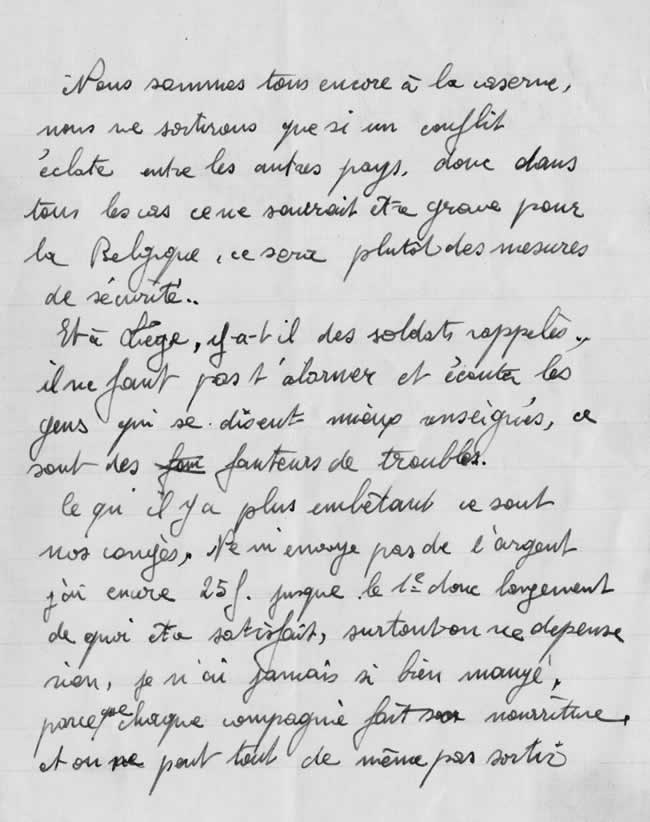 Nous sommes tous encore à la caserne,
nous ne sortirons que si un conflit
éclate entre les autres pays, donc dans
tous les cas ce ne saurait être grave pour
la Belgique, ce sera plutôt des mesures
de sécurité..
Et à Liège, y-a-t il des soldats rappelés.,
il ne faut pas t'alarmer et écouter les
gens qui se disent mieux renseignés, ce
sont des fau fauteurs de troubles.
Ce qu'il y a plus embêtant ce sont
nos congés. Ne m'envoye pas de l'argent
j'ai encore 25 f. jusque le 1e donc largement
de quoi être satisfait, surtout on ne depense
rien, je n'ai jamais si bien mangé,
parce que chaque compagnie fait sa nourriture,
et on ne peut tout de même pas sortir